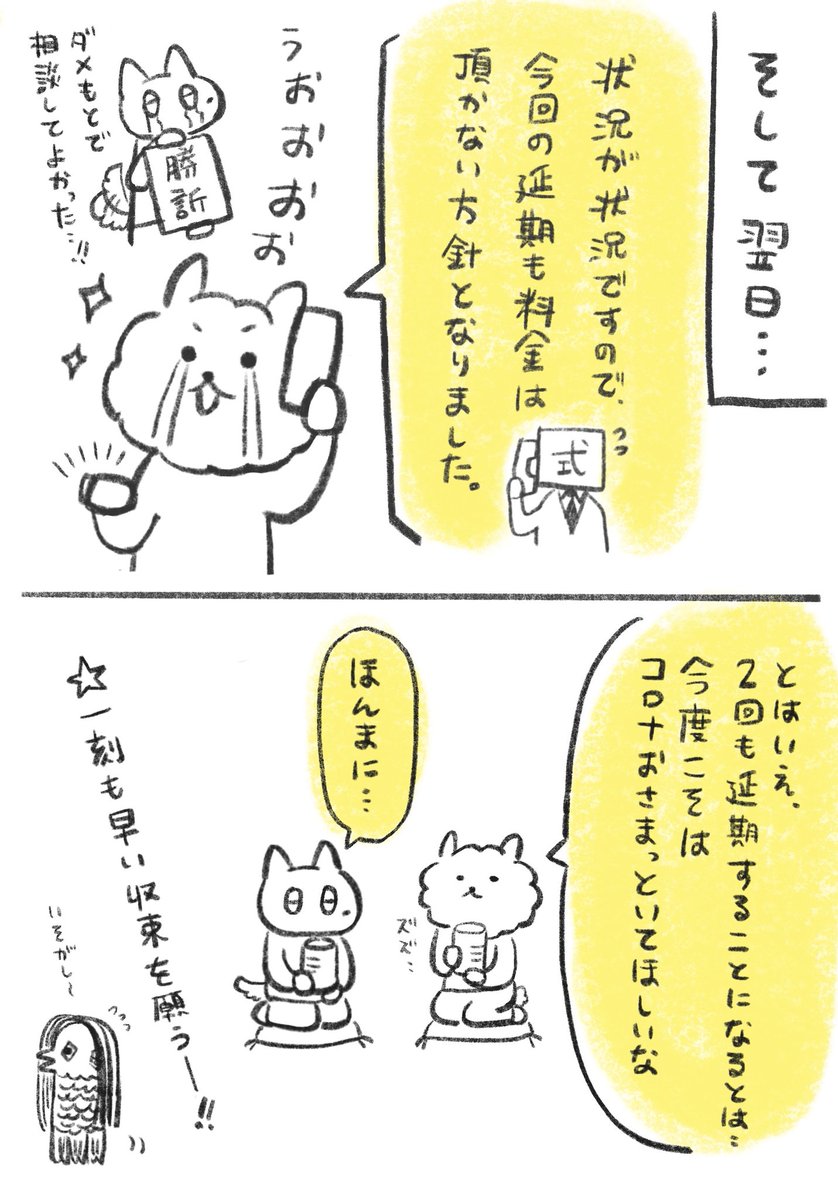 そして翌日…
状況が状況ですので、
今回の延期も料金は
頂かない方針となりました。
式
うおおおお
勝訴
ダメもとで
相談してよかった…!!
とはいえ、
2回も延期することになるとは…
今度こそは
コロナおさまっといてほしいな
ズズ…
ほんまに…
☆一刻も早い収束を願うー!!
いそがし〜